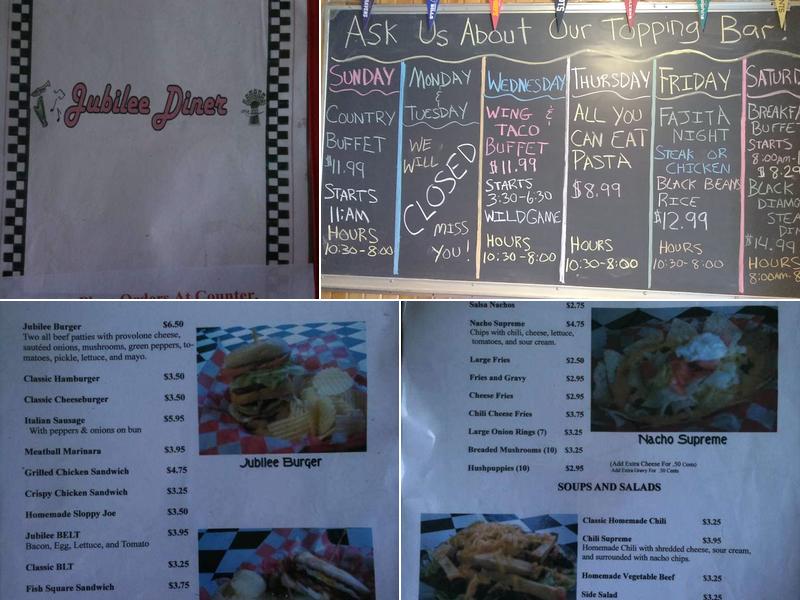 Jubilee Diner
Place Orders At Counter.
Ask Us About Our Topping Bar!
SUNDAY
COUNTRY
BUFFET
$11.99
STARTS
11:AM
HOURS
10:30-8:00
MONDAY
&
TUESDAY
WE
WILL
CLOSED
MISS
YOU!
WEDNESDAY
WING &
TACO
BUFFET
$11.99
STARTS
3:30-6:30
WILDGAME
HOURS
10:30-8:00
THURSDAY
ALL YOU
CAN EAT
PASTA
$8.99
HOURS
10:30-8:00
FRIDAY
FAJITA
NIGHT
STEAK OR
CHICKEN
BLACK BEANS
RICE
$12.99
HOURS
10:30-8:00
SATURD
BREAKFA
BUFFET
STARTS
8:00AM-
$8.29
BLACK
DIAMO
STEA
DIN
$14.99
HOURS
8:00AM-8
Jubilee Burger $6.50
Two all beef patties with provolone cheese,
sautéed onions, mushrooms, green peppers, to-
matoes, pickle, lettuce, and mayo.
Classic Hamburger $3.50
Classic Cheeseburger $3.50
Italian Sausage $5.95
With peppers & onions on bun
Meatball Marinara $3.95
Grilled Chicken Sandwich $4.75
Crispy Chicken Sandwich $3.25
Homemade Sloppy Joe $3.50
Jubilee BELT $3.95
Bacon, Egg, Lettuce, and Tomato
Classic BLT $3.25
Fish Square Sandwich $3.75
Jubilee Burger
Salsa Nachos $2.75
Nacho Supreme $4.75
Chips with chili, cheese, lettuce,
tomatoes, and sour cream.
Large Fries $2.50
Fries and Gravy $2.95
Cheese Fries $2.95
Chili Cheese Fries $3.75
Large Onion Rings (7) $3.25
Breaded Mushrooms (10) $3.25
Hushpuppies (10) $2.95
Nacho Supreme
(Add Extra Cheese For .50 Cents)
Add Extra Gravy For .50 Cents
SOUPS AND SALADS
Classic Homemade Chili $3.25
Chili Supreme $3.95
Homemade Chili with shredded cheese, sour cream,
and surrounded with nacho chips.
Homemade Vegetable Beef $3.25
Side Salad $3.25